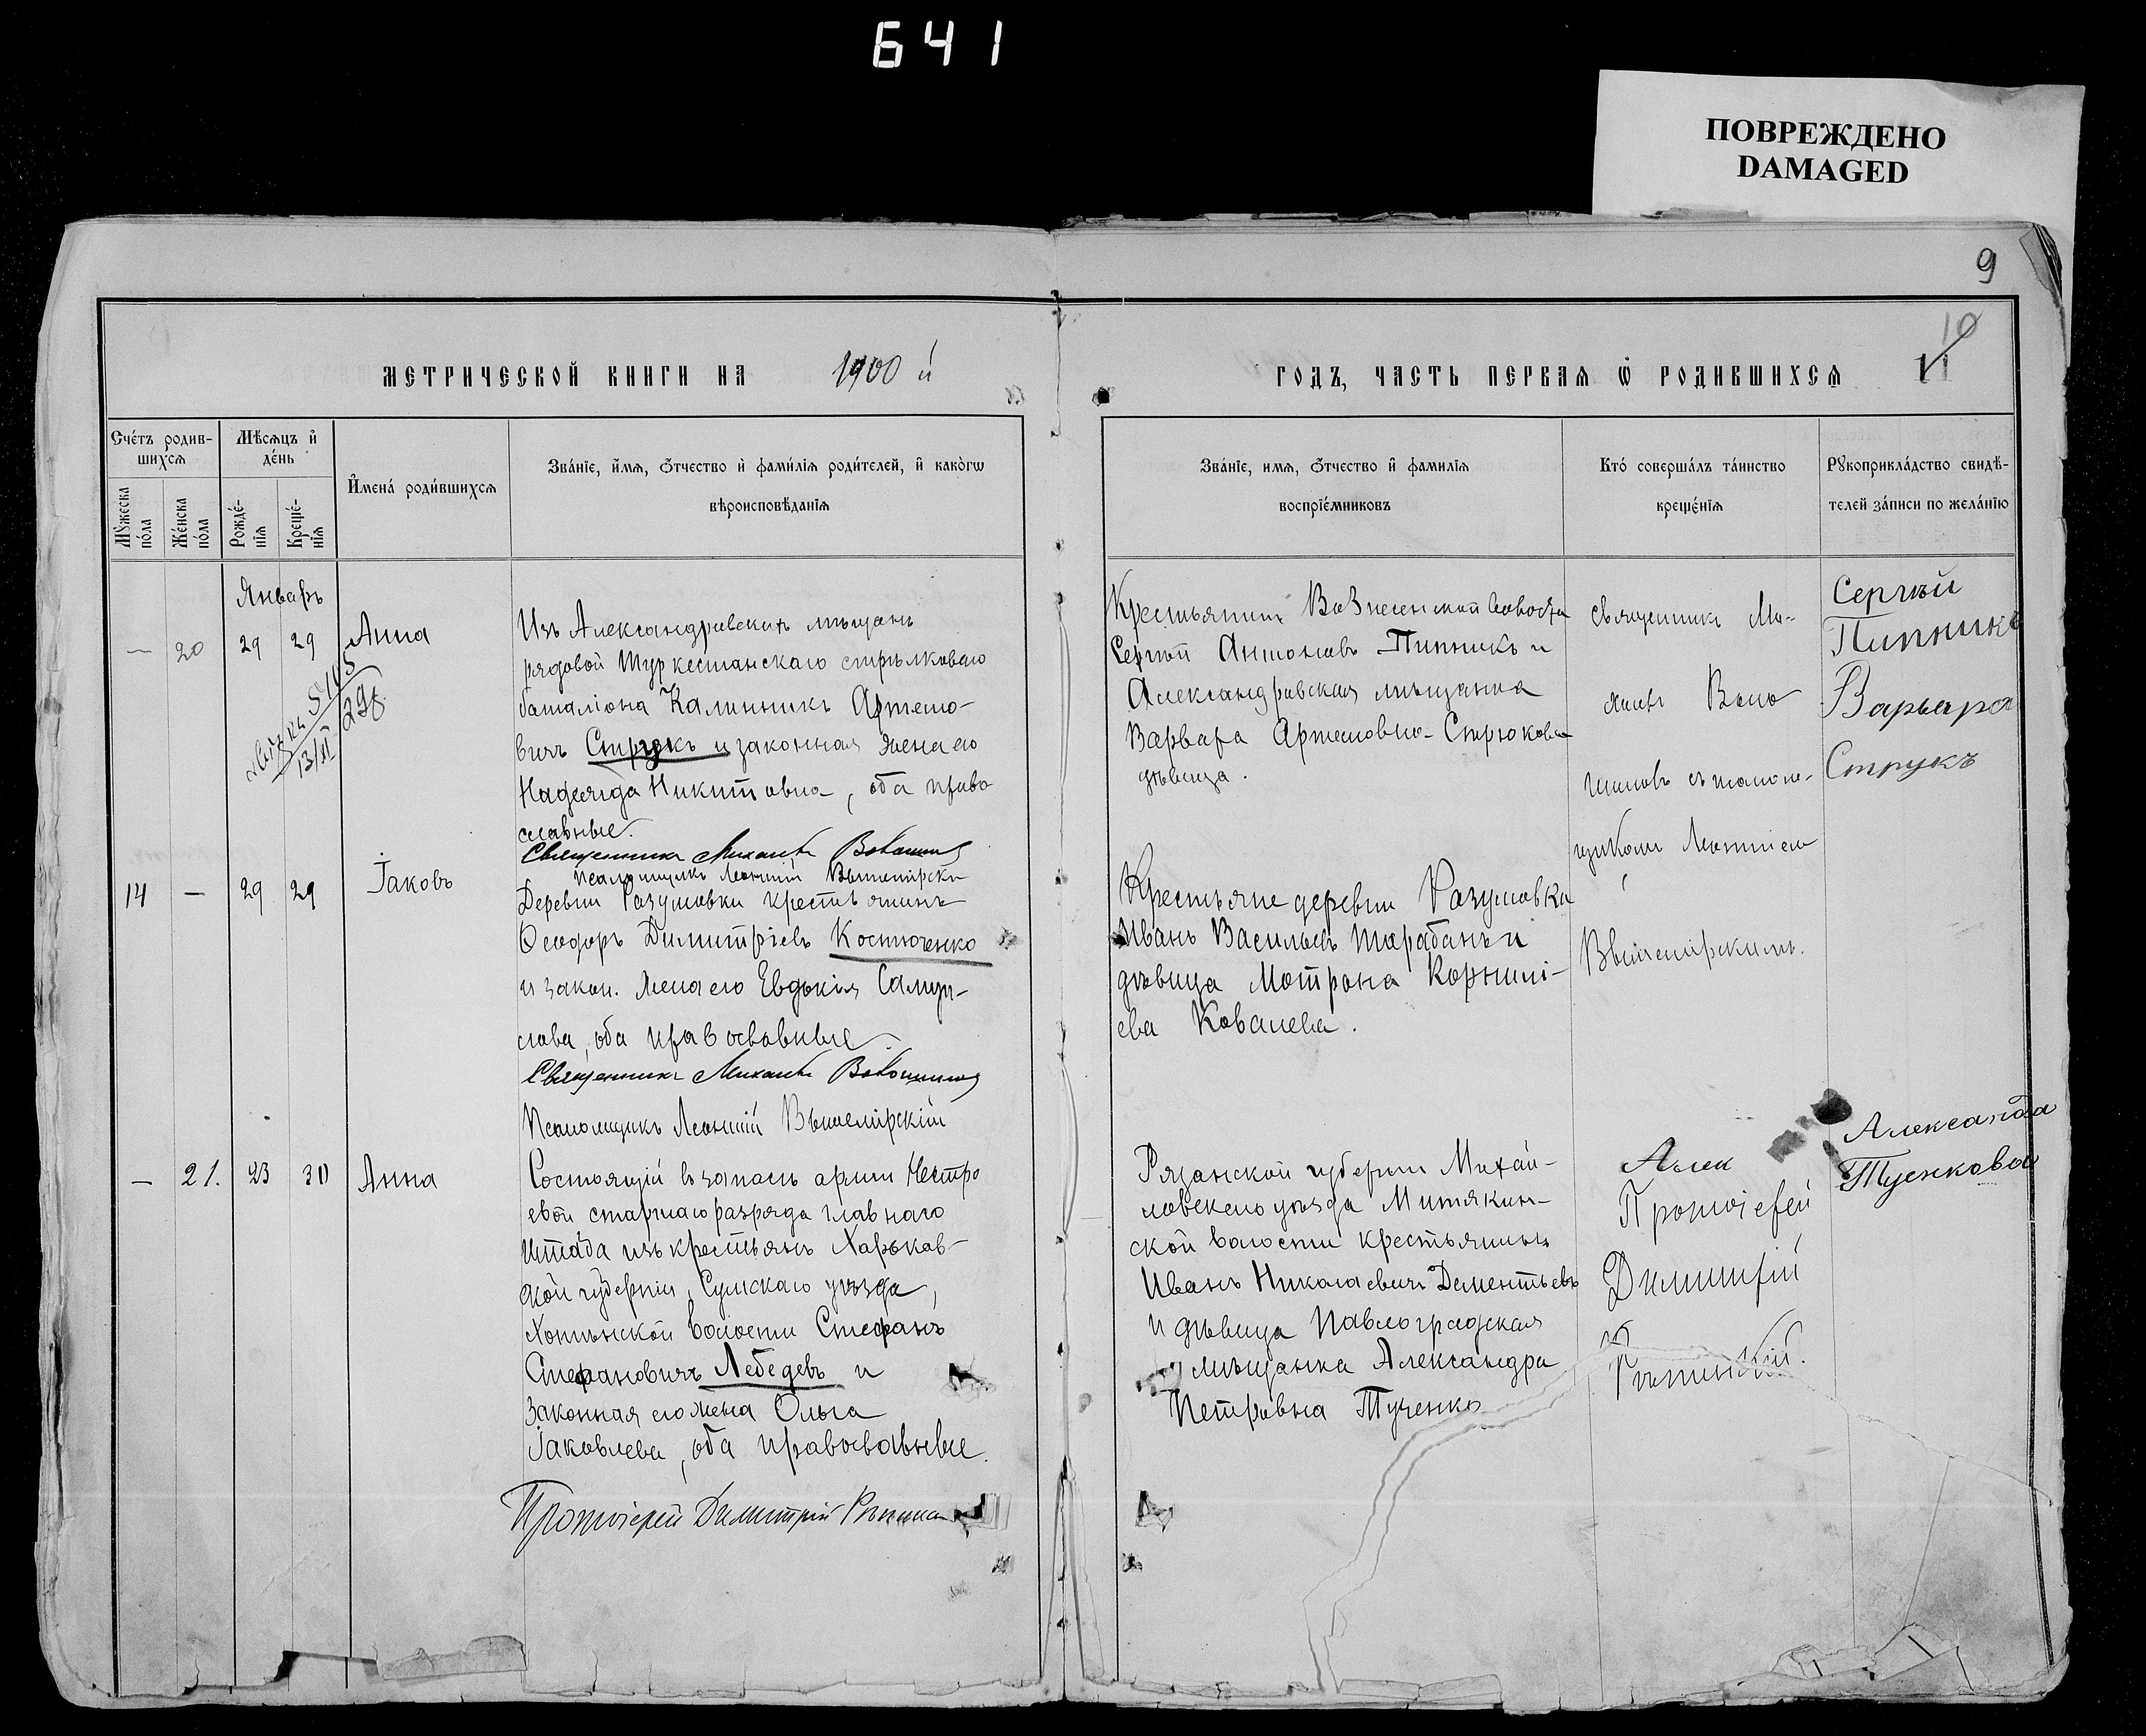 641
ПОВРЕЖДЕНО
DAMAGED
9
10
11
МЕТРИЧЕСКОЙ КНИГИ НА 1900 й
ГОДЪ, ЧАСТЬ ПЕРВАЯ Ѡ РОДИВШИХСЯ
Счéтъ родив-
шихся
Мѣсяцъ и дéнь
Мужеска пóла
Жéнска пóла
Рождé-
нія
Крещé-
нія
Именá родившихся
Звáніе, имя, Óтчество и фамилія родителей, и какòгѡ
вѣроисповѣданія
Звáніе, имя, Óтчество и фамилія
воспріéмниковъ
Ктó совершáлъ тáинство
крещéнія
Рукоприклáдство свидѣ-
телей зáписи по желáнію
Январь
— 20 29 29 Анна
Изъ Александровскихъ мѣщанъ
рядовой Туркестанскаго стрѣлковаго
баталіона Калинникъ Артемо-
вичъ Струкъ и законная жена его
Надежда Никитовна, оба право
славные.
Священникъ Михаилъ Волошиновъ
Псаломщикъ Леонтій Вышемірскій
Крестьянинъ Вознесенской волости
Сергѣй Антоновъ Пипникъ и
Александровская мѣщанка
Варвара Артемовна Стрюкова
дѣвица.
Священникъ Ми-
хаилъ Воло
шиновъ съ псалом-
щикомъ Леонтіем
Вышемірскимъ.
Сергѣй
Пипникъ
Варвара
Струкъ
14 — 29 29 Іаковъ
Деревни Разумовки крестьянинъ
Ѳеодоръ Димитріевъ Костюченко
и закон. жена его Евдокія Самуи-
лова, оба православные
Священникъ Михаилъ Волошиновъ
Псаломщикъ Леонтій Вышемірскій
Крестьяне деревни Разумовки
Иванъ Васильевъ Тарабанъ и
дѣвица Мотрона Корнилі-
ева Ковалева.
— 21. 23 30 Анна
Состоящій въ запасѣ арміи Нестро
евой старшаго разряда главнаго
Штаба изъ крестьянъ Харьков-
ской губерніи, Сумскаго уѣзда,
Хотѣнской волости Стефанъ
Стефановичъ Лебедевъ и
законная его жена Ольга
Іаковлева, оба православные.
Протоіерей Димитрій
Рязанской губерніи Михай-
ловскаго уѣзда Митякин-
ской волости крестьянинъ
Иванъ Николаевичъ Дементьевъ
и дѣвица Павлоградская
мѣщанка Александра
Петровна Тученко
Алек
Протоіерей
Димитрій
Александра
Тученкова